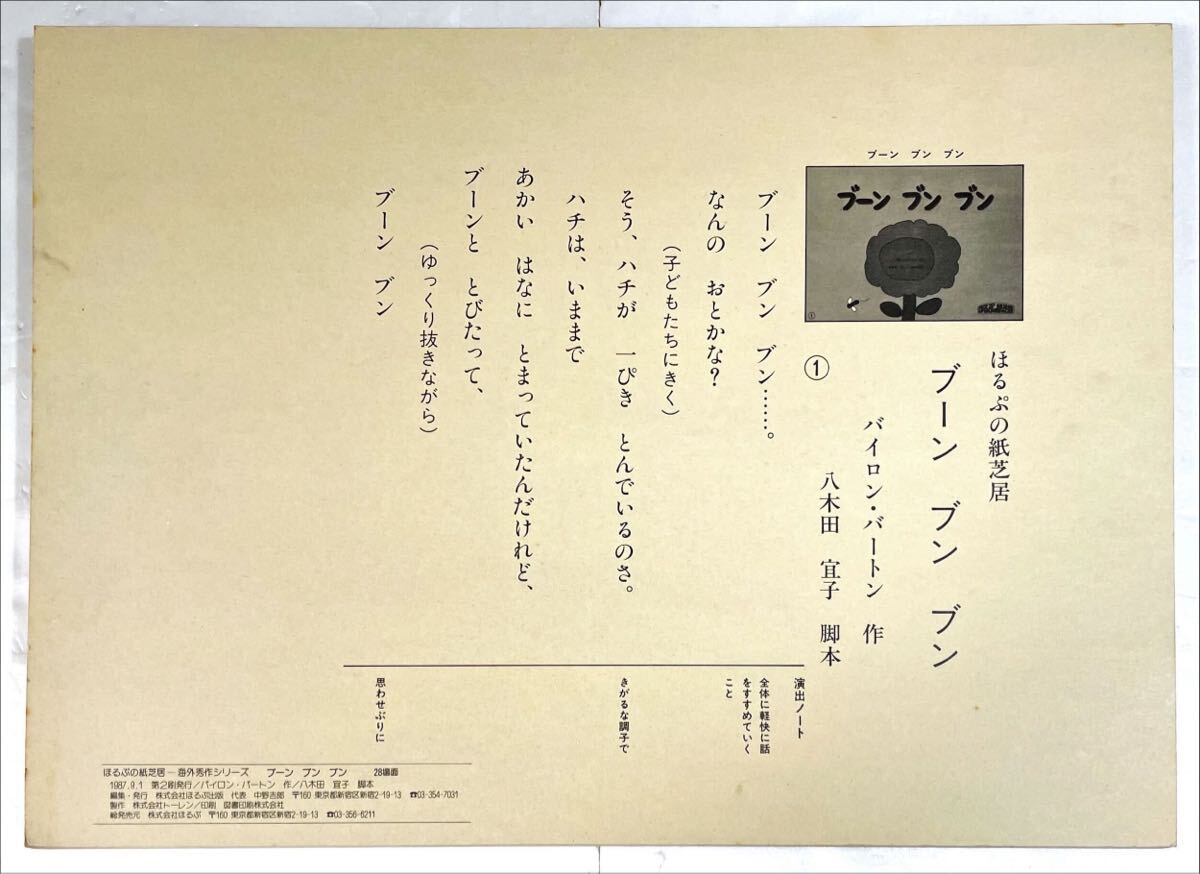 ほるぷの紙芝居
ブーン ブン ブン
バイロン・バートン 作
八木田 宜子 脚本
ブーン ブン ブン
ブーン ブン ブン
①
①
ブーン ブン ブン……。
なんの おとかな?
(子どもたちにきく)
そう、ハチが 一ぴき とんでいるのさ。
ハチは、いままで
あかい はなに とまっていたんだけれど、
ブーンと とびたって、
(ゆっくり抜きながら)
ブーン ブン
演出ノート
全体に軽快に話
をすすめていく
こと
きがるな調子で
思わせぶりに
ほるぷの紙芝居―海外秀作シリーズ ブーン ブン ブン 28場面
1987.9.1 第2刷発行/バイロン・バートン 作/八木田 宜子 脚本
編集・発行 株式会社ほるぷ出版 代表 中野吉郎 〒160 東京都新宿区新宿2-19-13 ☎03-354-7031
製作 株式会社トーレン/印刷 図書印刷株式会社
総発売元 株式会社ほるぷ 〒160 東京都新宿区新宿2-19-13 ☎03-356-6211